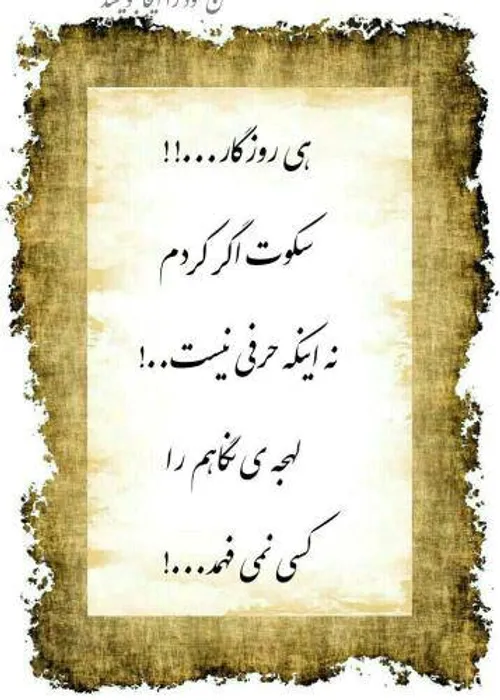 هی روزگار...!!
سکوت اگر کردم
نه اینکه حرفی نیست..!
لهجه ی نگاهم را
کسی نمی فهمد...!